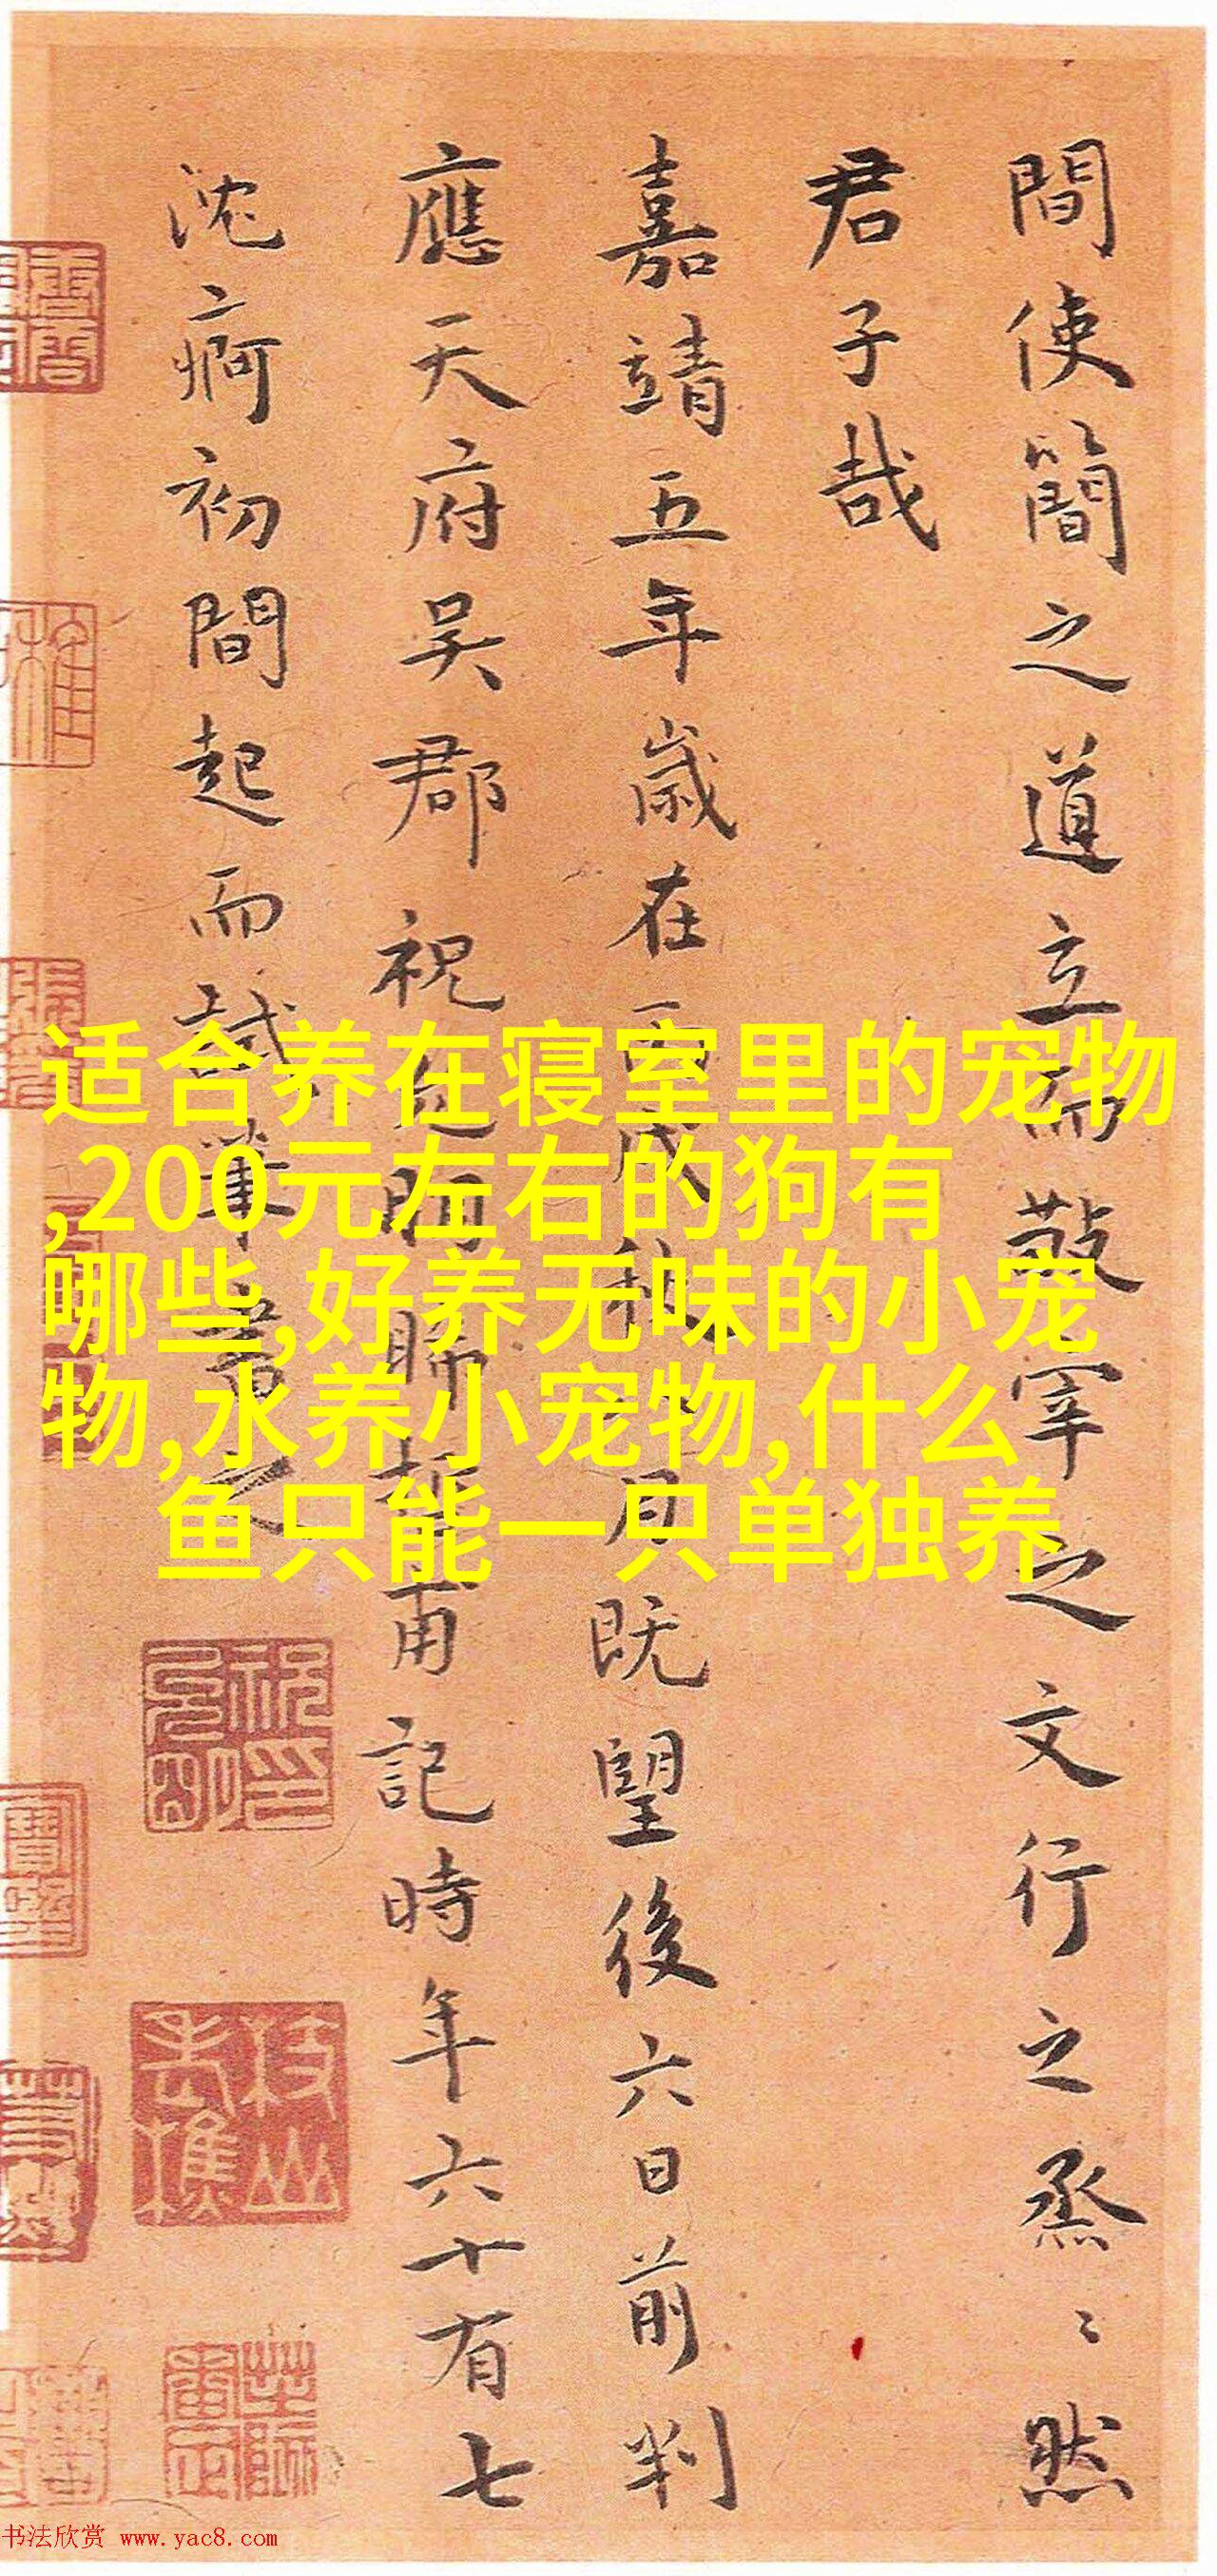 間使簡之道立而敬宰之文行之烝〻然
君子哉
嘉靖五年歲在丙戌秋七月既望後六日前判
應天府吳郡祝允明晞哲甫記時年六十有七
沈痾初間起而試筆書之
适合养在寝室里的宠物
,200元左右的狗有
哪些,好养无味的小宠
物,水养小宠物,什么
鱼只能一只单独养
枝山老樵
书法欣赏 www.yac8.com